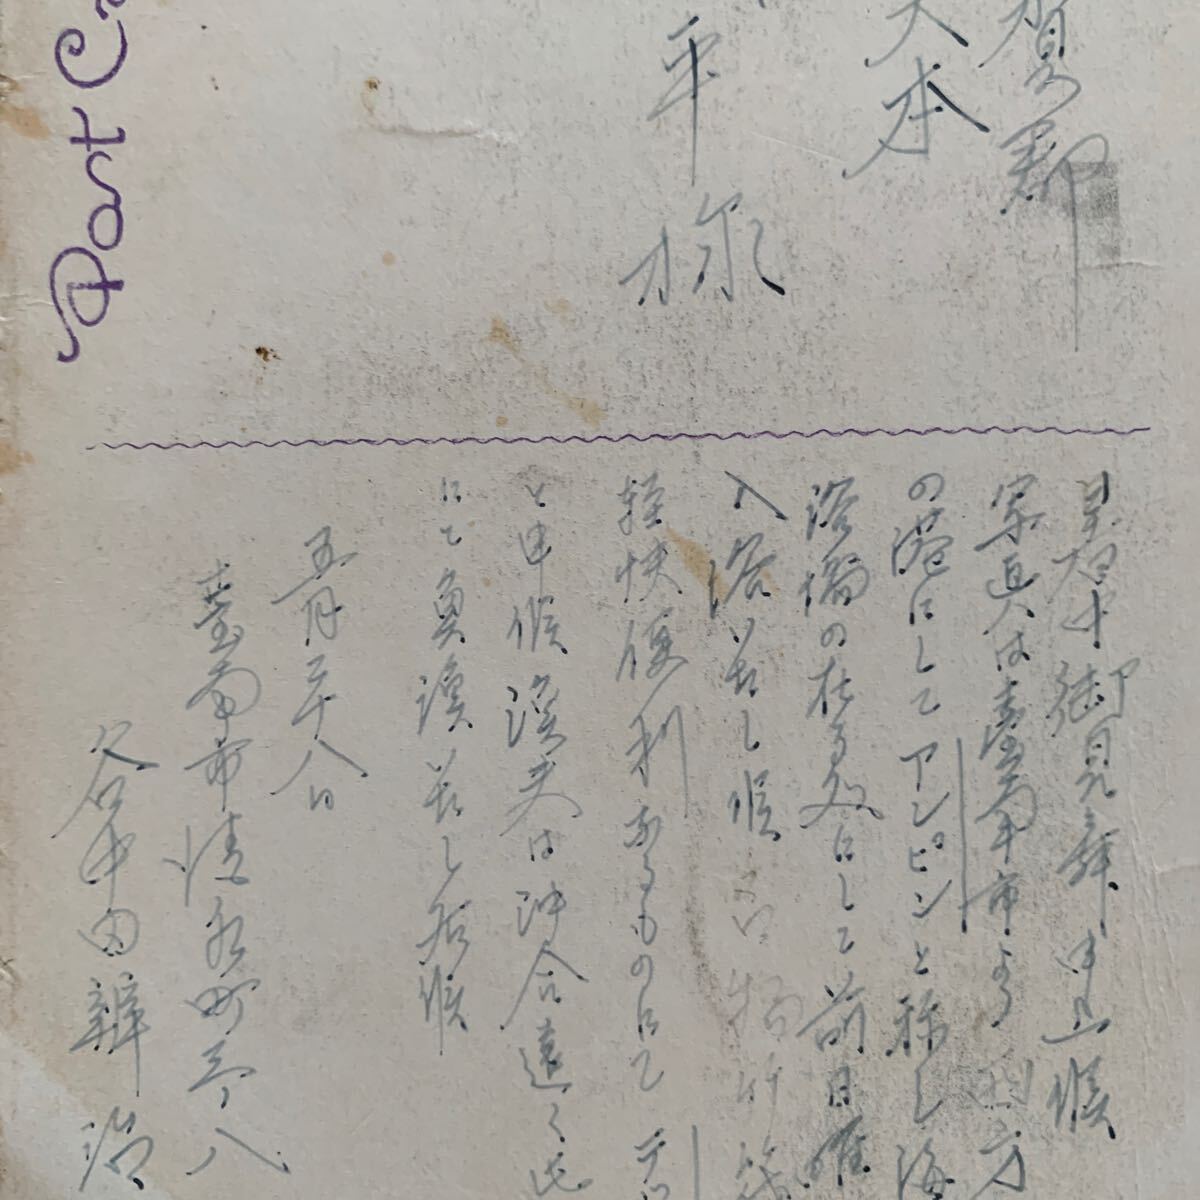 Post C
賀郡
大本
平様
暑中御見舞申上候
写真は臺南市より 西方
の港にしてアンピンと称し海
浴場の在る処にして前日唯
入浴致し候 此
軽快便利なるものにて テ
と申候 漁夫は沖合遠く此
にて魚漁致し居候
五月二十八日
臺南市清水町 八
谷中田辨治